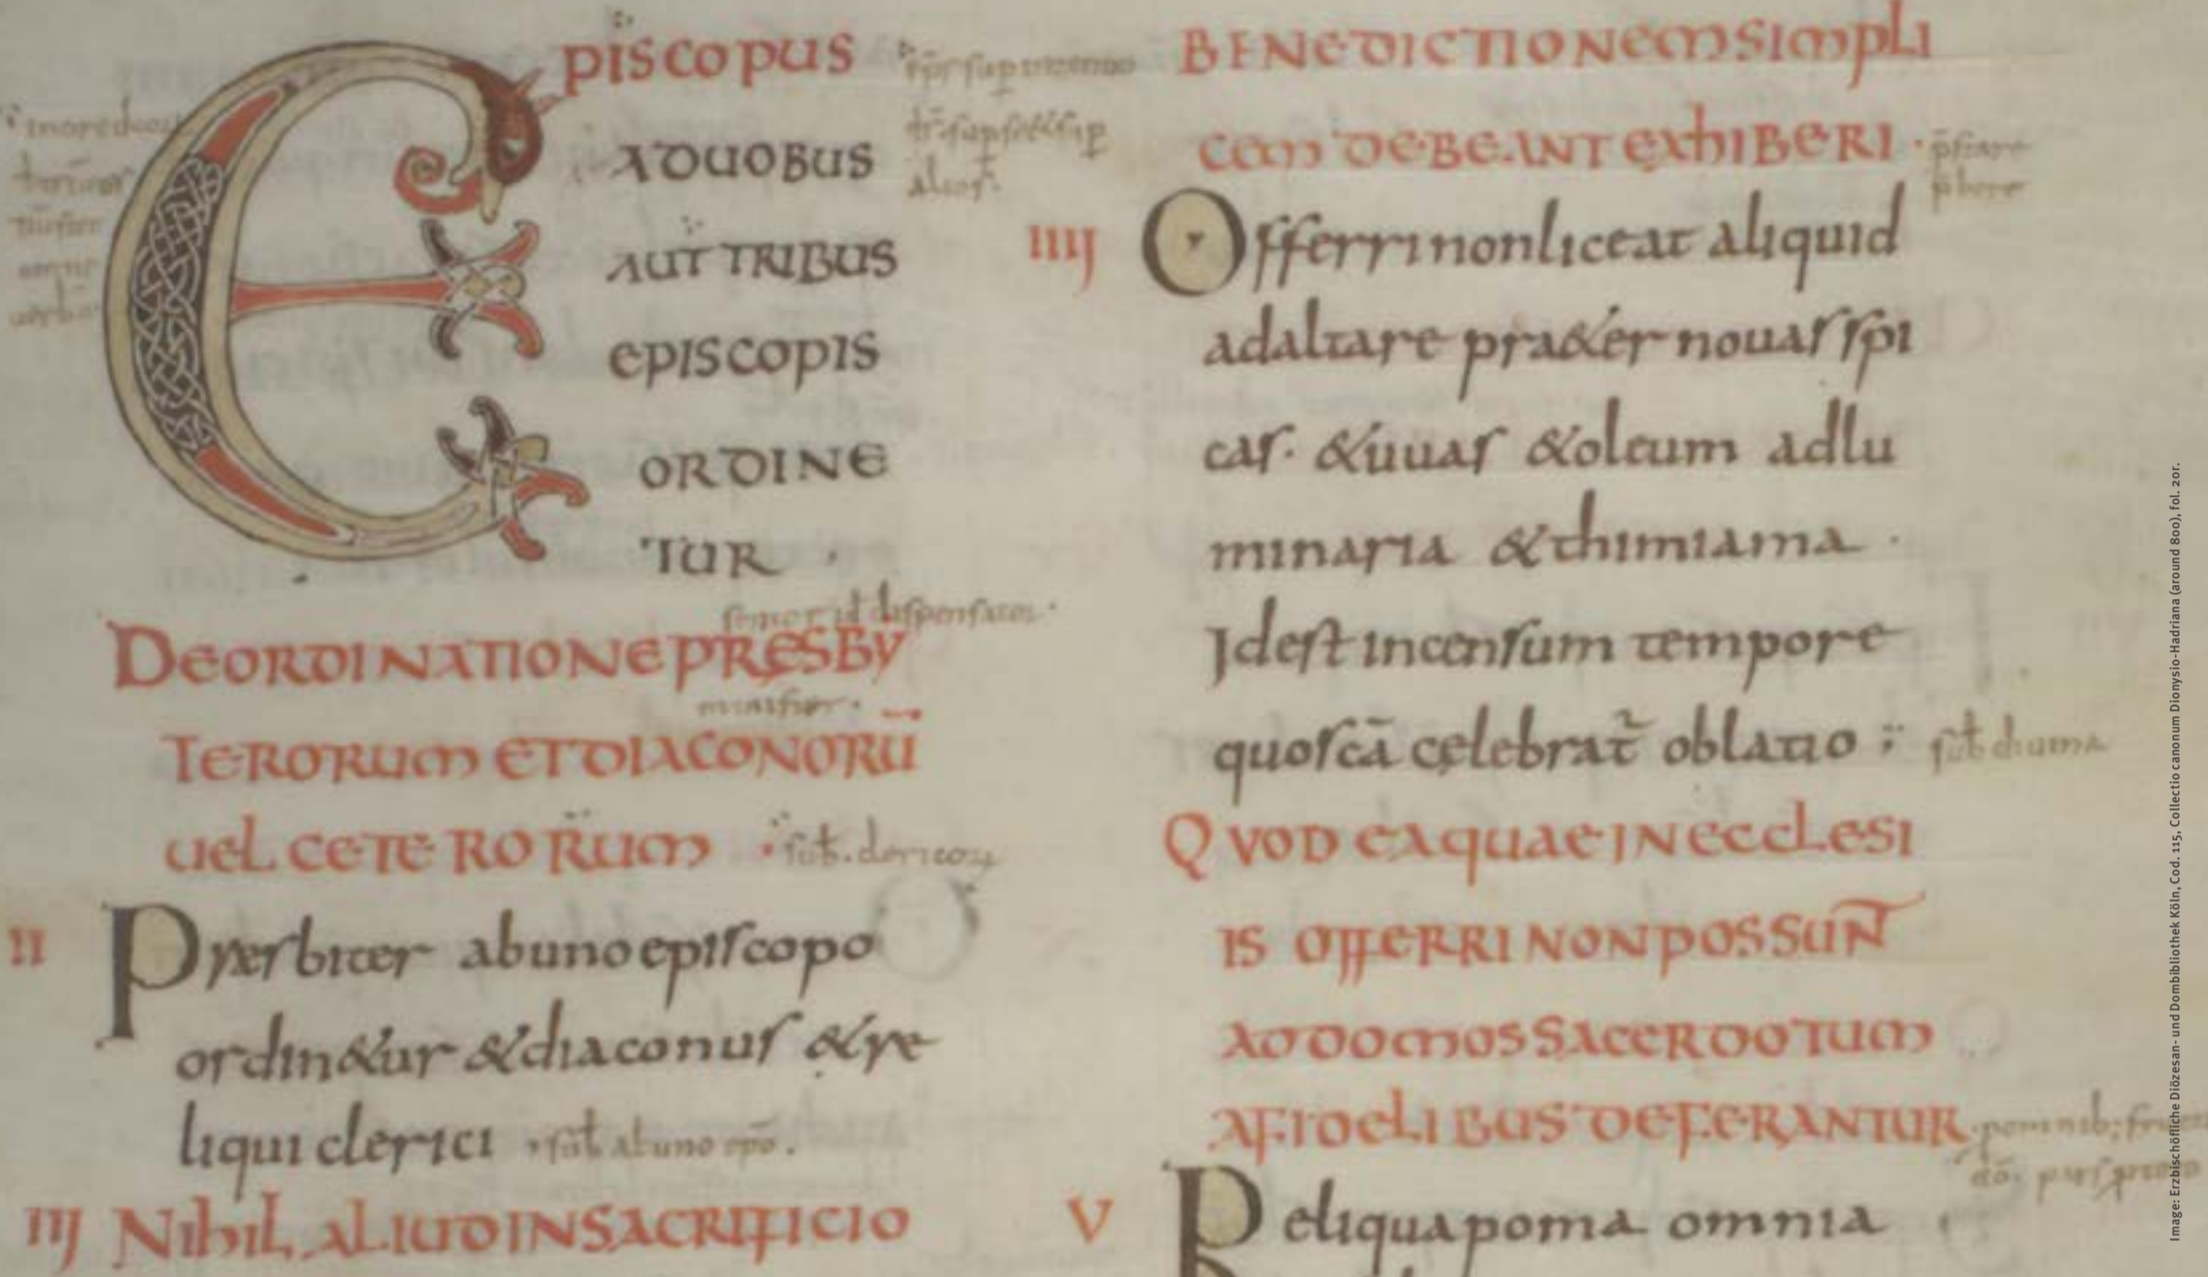 EPISCOPUS
A DUOBUS
AUT TRIBUS
EPISCOPIS
ORDINE
TUR ·
senior ul dispensator ·
DE ORDINATIONE PRESBY
minister ·
TERORUM ET DIACONORŪ
UEL CETERORUM
II Presbiter ab uno episcopo
ordin&ur & diaconus & re
liqui clerici · sub ab uno
IIJ NIHIL ALIUD IN SACRIFICIO
BENEDICTIONEM SIMPLI
CEM DEBEANT EXHIBERI ·
IIIJ Offerri non liceat aliquid
ad altare pra&er nouas spi
cas · & uuas & oleum ad lu
minaria & thimiama ·
Id est incensum tempore
quo scā celebrat̃ oblatio ;
QVOD EA QUAE IN ECCLESI
IS OFFERRI NON POSSUNT
AD DOMOS SACERDOTUM
A FIDELIBUS DEFERANTUR
V Reliqua poma omnia
Image: Erzbischöfliche Diözesan- und Dombibliothek Köln, Cod. 115, Collectio canonum Dionysio-Hadriana (around 800), fol. 20r.